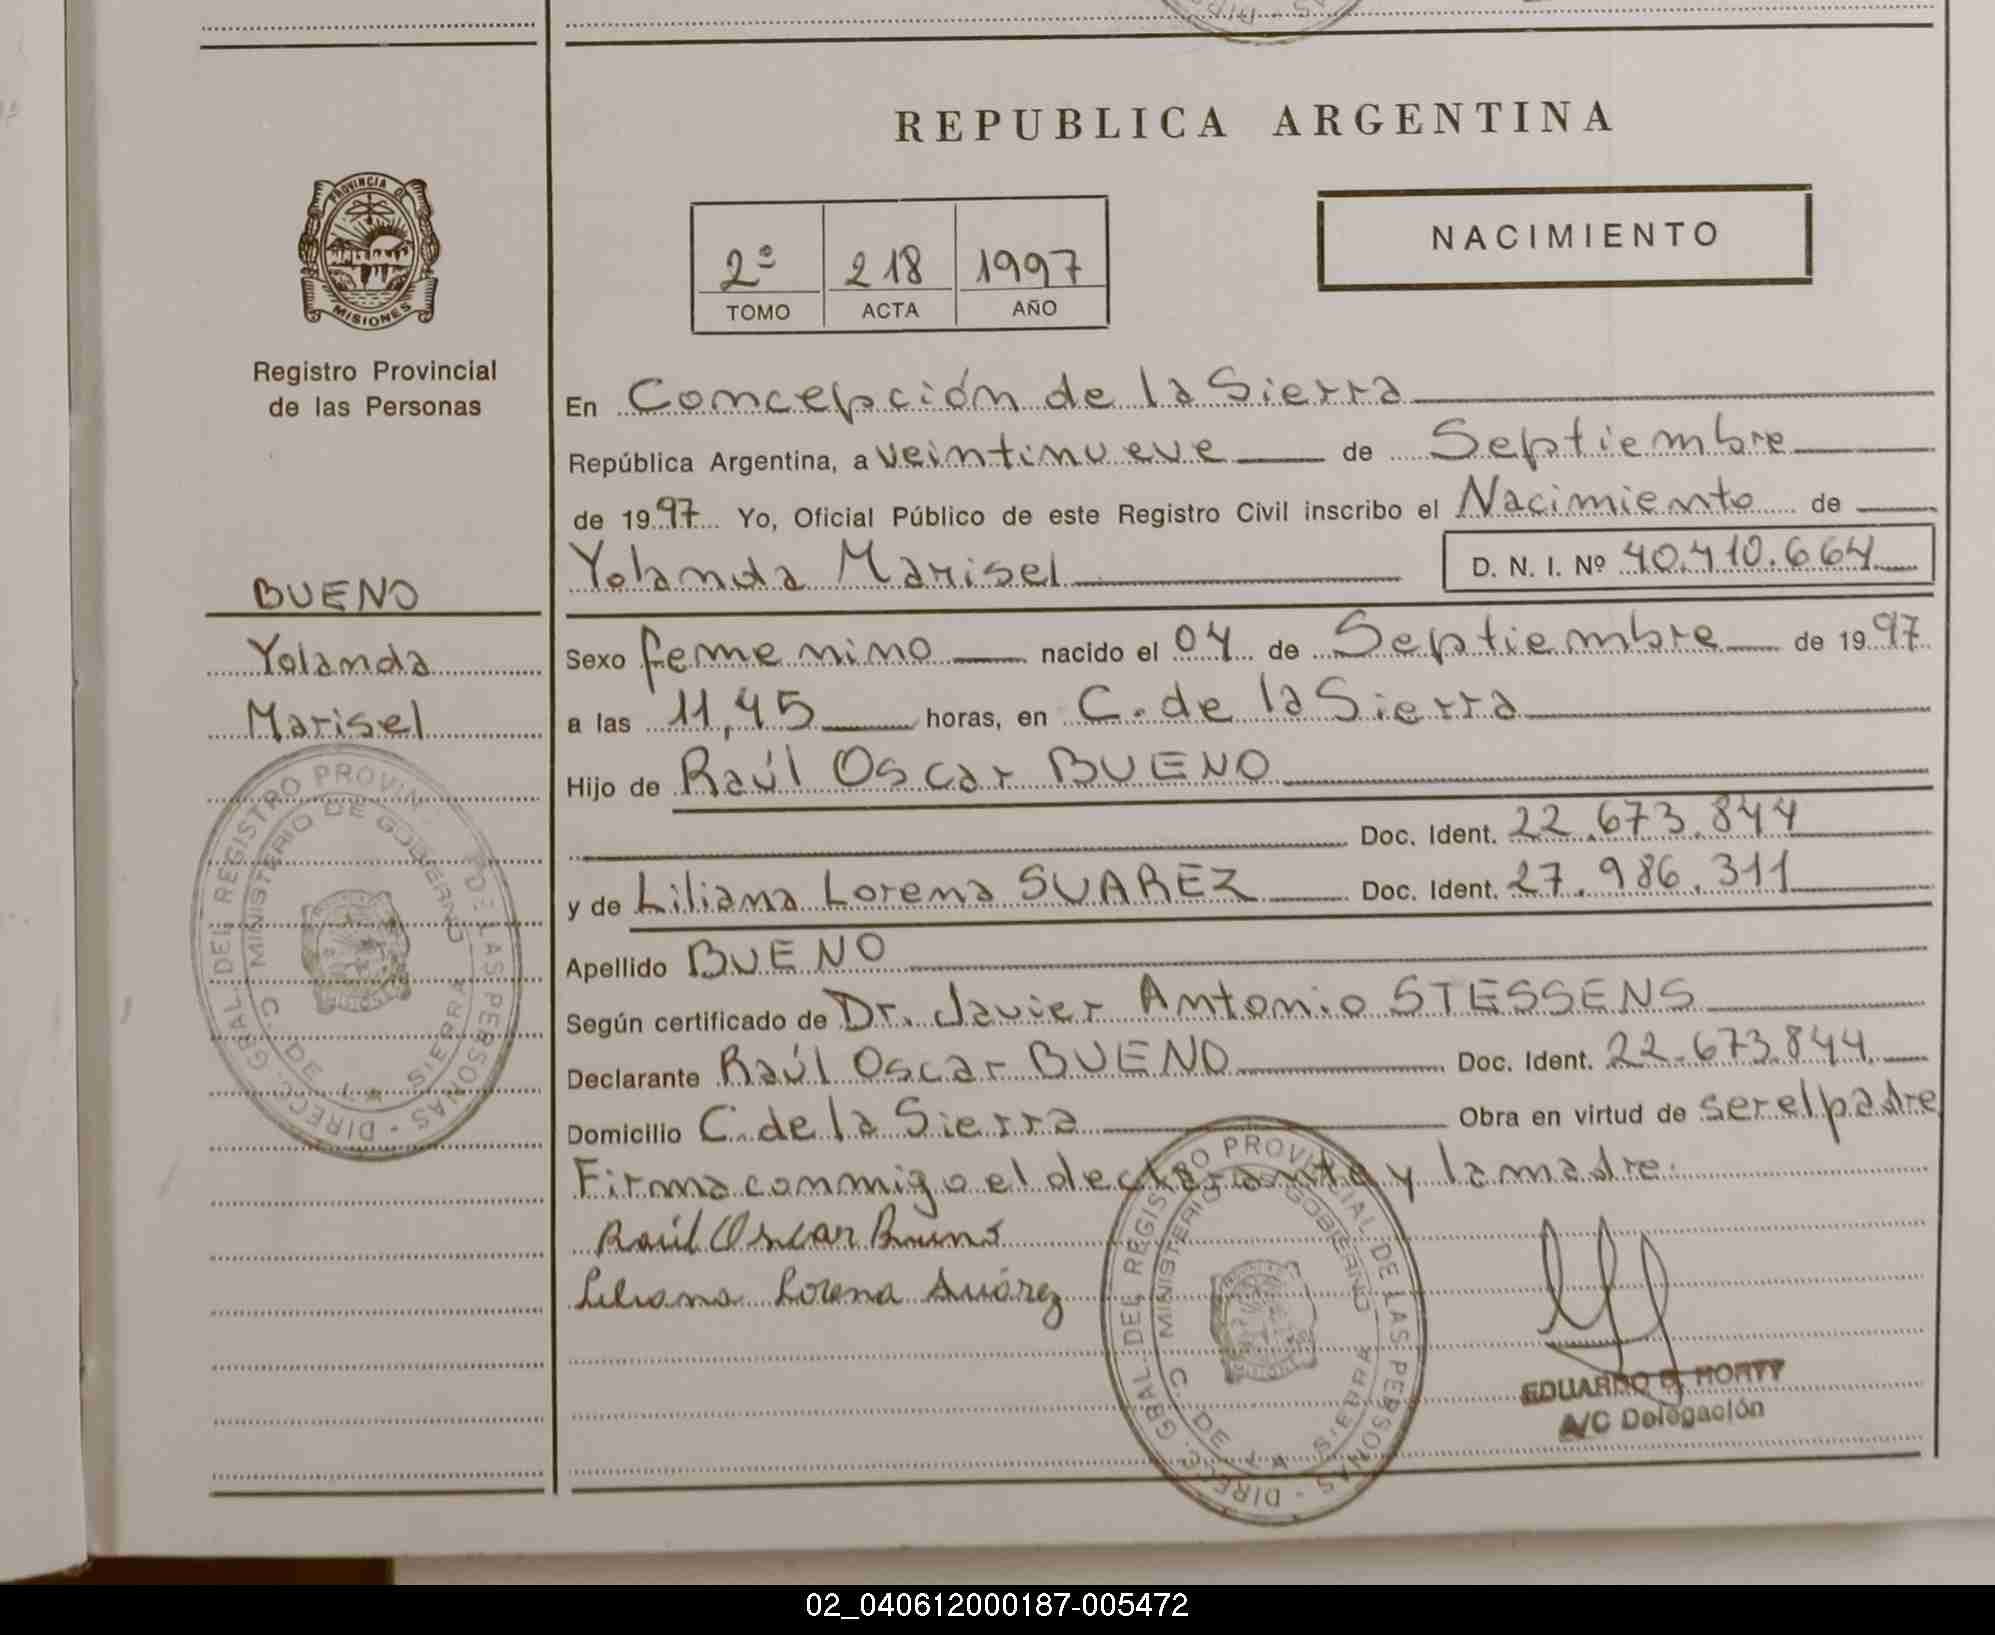 REPUBLICA ARGENTINA
PROVINCIA DE
MISIONES
Registro Provincial
de las Personas
2º 218 1997
TOMO ACTA AÑO
NACIMIENTO
En Concepción de la Sierra
República Argentina, a veintinueve de Septiembre
de 1997 Yo, Oficial Público de este Registro Civil inscribo el Nacimiento de
Yolanda Marisel D. N. I. Nº 40.410.664
BUENO
Yolanda
Marisel
Sexo femenino nacido el 04 de Septiembre de 1997
a las 11,45 horas, en C. de la Sierra
Hijo de Raúl Oscar BUENO
Doc. Ident. 22.673.844
y de Liliana Lorena SUAREZ Doc. Ident. 27.986.311
Apellido BUENO
Según certificado de Dr. Javier Antonio STESSENS
Declarante Raúl Oscar BUENO Doc. Ident. 22.673.844
Domicilio C. de la Sierra Obra en virtud de ser el padre
Firma conmigo el declarante y la madre.
Raúl Oscar Bueno
Liliana Lorena Suárez
DIREC. GRAL. DEL REGISTRO PROVINCIAL DE LAS PERSONAS
MINISTERIO DE GOBIERNO
C. DE LA SIERRA
DIREC. GRAL. DEL REGISTRO PROVINCIAL DE LAS PERSONAS
MINISTERIO DE GOBIERNO
C. DE LA SIERRA
EDUARDO
A/C Delegación
02_040612000187-005472